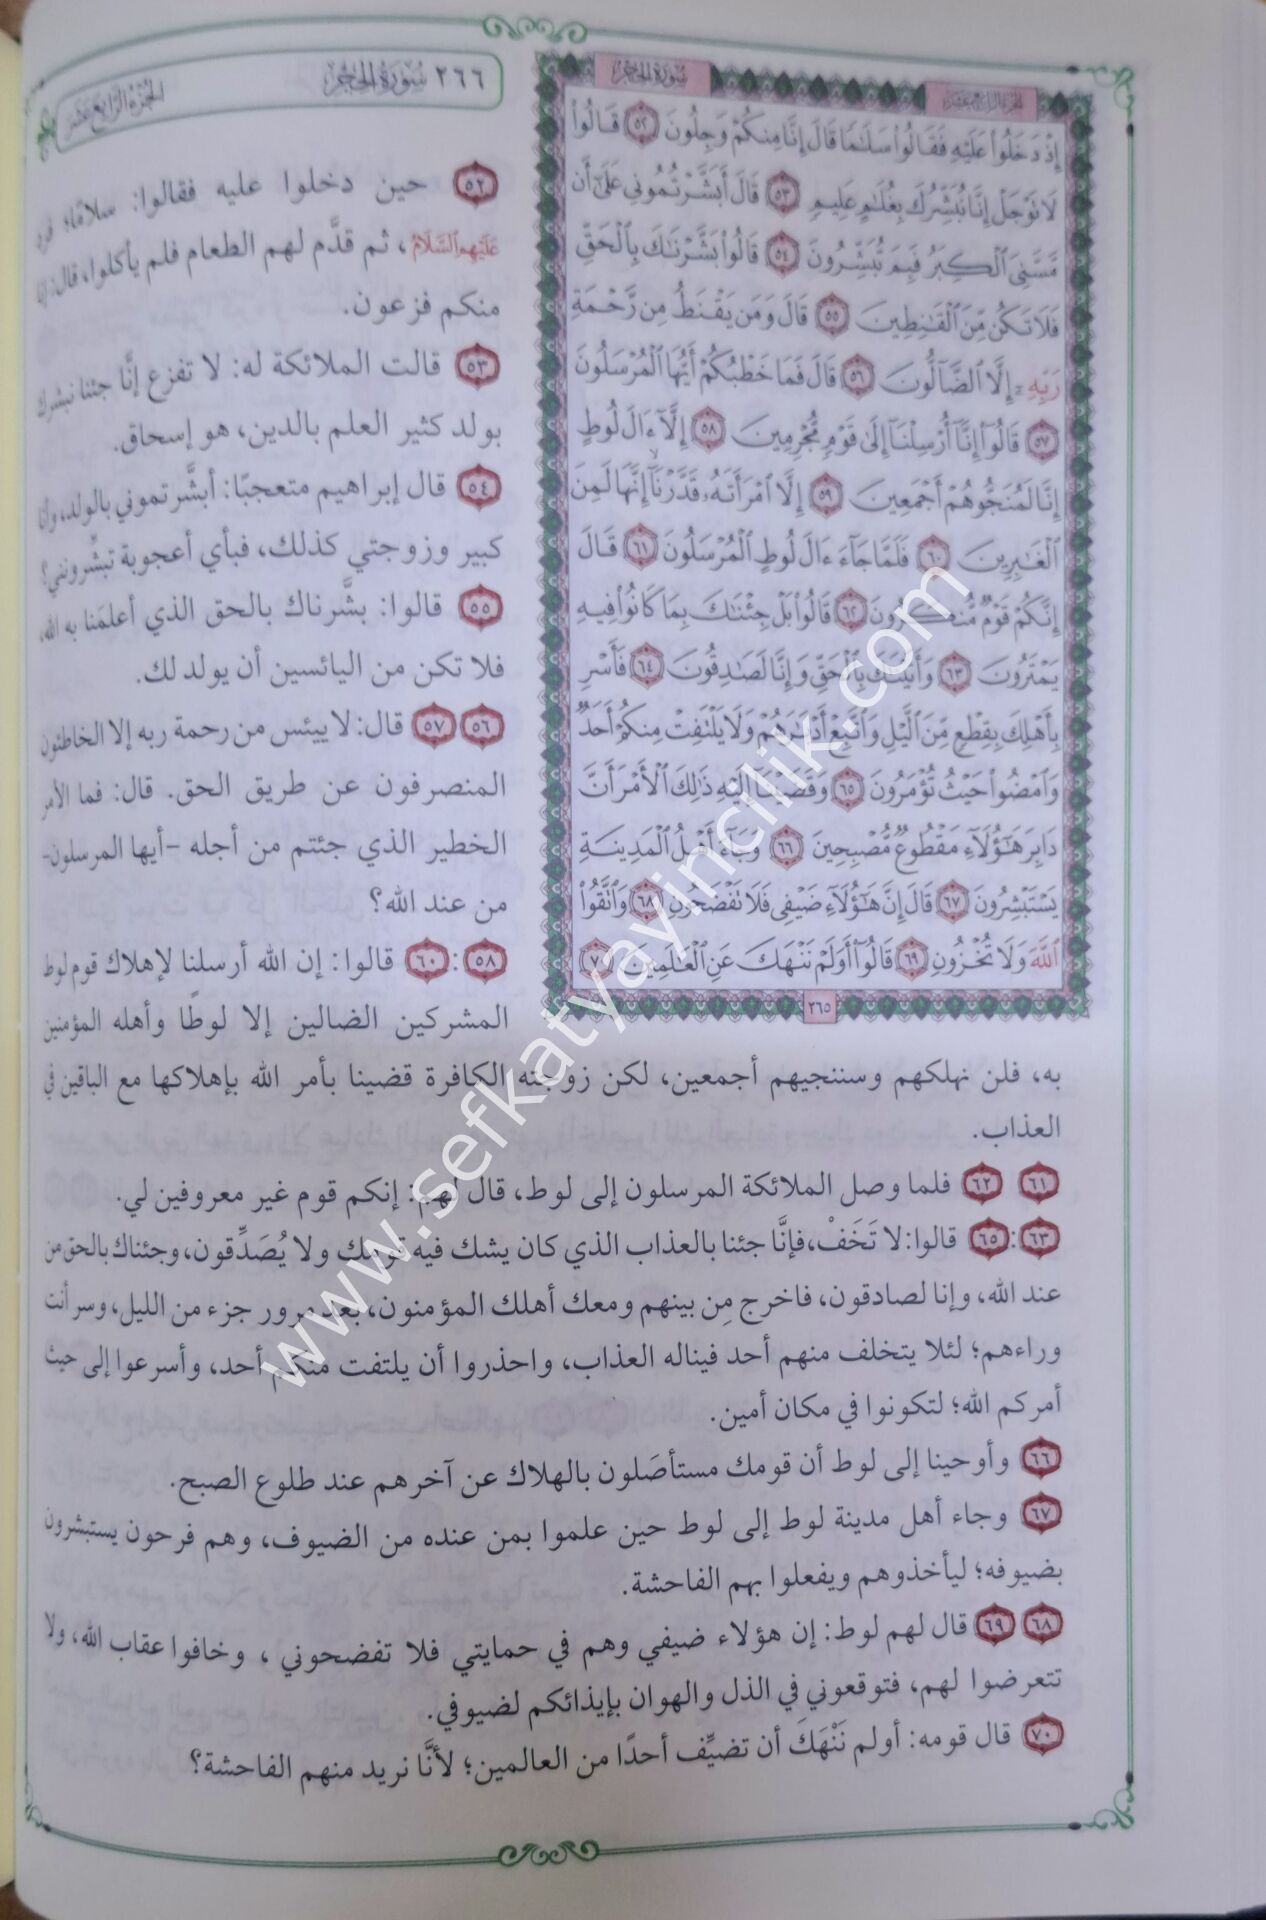 الجزء الرابع عشر
سورة الحجر
إِذْ دَخَلُوا۟ عَلَيْهِ فَقَالُوا۟ سَلَـٰمًا قَالَ إِنَّا مِنكُمْ وَجِلُونَ ٥٢ قَالُوا۟
لَا تَوْجَلْ إِنَّا نُبَشِّرُكَ بِغُلَـٰمٍ عَلِيمٍ ٥٣ قَالَ أَبَشَّرْتُمُونِى عَلَىٰٓ أَن
مَّسَّنِىَ ٱلْكِبَرُ فَبِمَ تُبَشِّرُونَ ٥٤ قَالُوا۟ بَشَّرْنَـٰكَ بِٱلْحَقِّ
فَلَا تَكُن مِّنَ ٱلْقَـٰنِطِينَ ٥٥ قَالَ وَمَن يَقْنَطُ مِن رَّحْمَةِ
رَبِّهِۦٓ إِلَّا ٱلضَّآلُّونَ ٥٦ قَالَ فَمَا خَطْبُكُمْ أَيُّهَا ٱلْمُرْسَلُونَ
٥٧ قَالُوٓا۟ إِنَّآ أُرْسِلْنَآ إِلَىٰ قَوْمٍ مُّجْرِمِينَ ٥٨ إِلَّآ ءَالَ لُوطٍ
إِنَّا لَمُنَجُّوهُمْ أَجْمَعِينَ ٥٩ إِلَّا ٱمْرَأَتَهُۥ قَدَّرْنَآ إِنَّهَا لَمِنَ
ٱلْغَـٰبِرِينَ ٦٠ فَلَمَّا جَآءَ ءَالَ لُوطٍ ٱلْمُرْسَلُونَ ٦١ قَالَ
إِنَّكُمْ قَوْمٌ مُّنكَرُونَ ٦٢ قَالُوا۟ بَلْ جِئْنَـٰكَ بِمَا كَانُوا۟ فِيهِ
يَمْتَرُونَ ٦٣ وَأَتَيْنَـٰكَ بِٱلْحَقِّ وَإِنَّا لَصَـٰدِقُونَ ٦٤ فَأَسْرِ
بِأَهْلِكَ بِقِطْعٍ مِّنَ ٱلَّيْلِ وَٱتَّبِعْ أَدْبَـٰرَهُمْ وَلَا يَلْتَفِتْ مِنكُمْ أَحَدٌ
وَٱمْضُوا۟ حَيْثُ تُؤْمَرُونَ ٦٥ وَقَضَيْنَآ إِلَيْهِ ذَٰلِكَ ٱلْأَمْرَ أَنَّ
دَابِرَ هَـٰٓؤُلَآءِ مَقْطُوعٌ مُّصْبِحِينَ ٦٦ وَجَآءَ أَهْلُ ٱلْمَدِينَةِ
يَسْتَبْشِرُونَ ٦٧ قَالَ إِنَّ هَـٰٓؤُلَآءِ ضَيْفِى فَلَا تَفْضَحُونِ ٦٨ وَٱتَّقُوا۟
ٱللَّهَ وَلَا تُخْزُونِ ٦٩ قَالُوٓا۟ أَوَلَمْ نَنْهَكَ عَنِ ٱلْعَـٰلَمِينَ ٧٠
٢٦٥
٢٦٦ سورة الحجر
الجزء الرابع عشر
٥٢ حين دخلوا عليه فقالوا: سلامًا؛ فرد
عليهم السلام، ثم قدَّم لهم الطعام فلم يأكلوا، قال: إنا
منكم فزعون.
٥٣ قالت الملائكة له: لا تفزع إنَّا جئنا نبشرك
بولد كثير العلم بالدين، هو إسحاق.
٥٤ قال إبراهيم متعجبًا: أبشَّرتموني بالولد، وأنا
كبير وزوجتي كذلك، فبأي أعجوبة تبشِّرونني؟
٥٥ قالوا: بشَّرناك بالحق الذي أعلمَنا به الله،
فلا تكن من اليائسين أن يولد لك.
٥٦ ٥٧ قال: لا ييئس من رحمة ربه إلا الخاطئون
المنصرفون عن طريق الحق. قال: فما الأمر
الخطير الذي جئتم من أجله -أيها المرسلون-
من عند الله؟
٥٨ : ٦٠ قالوا: إن الله أرسلنا لإهلاك قوم لوط
المشركين الضالين إلا لوطًا وأهله المؤمنين
به، فلن نهلكهم وسننجيهم أجمعين، لكن زوجته الكافرة قضينا بأمر الله بإهلاكها مع الباقين في
العذاب.
٦١ ٦٢ فلما وصل الملائكة المرسلون إلى لوط، قال لهم: إنكم قوم غير معروفين لي.
٦٣ : ٦٥ قالوا: لا تَخَفْ، فإنَّا جئنا بالعذاب الذي كان يشك فيه قومك ولا يُصَدِّقون، وجئناك بالحق من
عند الله، وإنا لصادقون، فاخرج مِن بينهم ومعك أهلك المؤمنون، بعد مرور جزء من الليل، وسر أنت
وراءهم؛ لئلا يتخلف منهم أحد فيناله العذاب، واحذروا أن يلتفت منكم أحد، وأسرعوا إلى حيث
أمركم الله؛ لتكونوا في مكان أمين.
٦٦ وأوحينا إلى لوط أن قومك مستأصَلون بالهلاك عن آخرهم عند طلوع الصبح.
٦٧ وجاء أهل مدينة لوط إلى لوط حين علموا بمن عنده من الضيوف، وهم فرحون يستبشرون
بضيوفه؛ ليأخذوهم ويفعلوا بهم الفاحشة.
٦٨ ٦٩ قال لهم لوط: إن هؤلاء ضيفي وهم في حمايتي فلا تفضحوني ، وخافوا عقاب الله، ولا
تتعرضوا لهم، فتوقعوني في الذل والهوان بإيذائكم لضيوفي.
٧٠ قال قومه: أولم نَنْهَكَ أن تضيِّف أحدًا من العالمين؛ لأنَّا نريد منهم الفاحشة؟
www.sefkatyayincilik.com